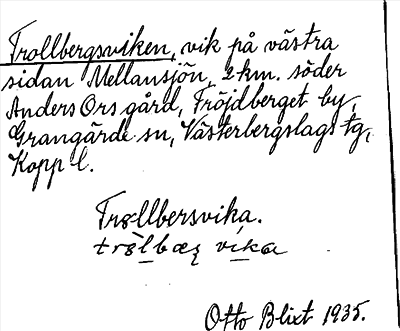 Trollbergsviken, vik på västra
sidan Mellansjön, 2 km. söder
Anders Ors gård, Fröjdberget by,
Grangärde sn, Västerbergslags tg,
Kopp l.
Trollbersvika.
vika
Otto Blixt 1935.